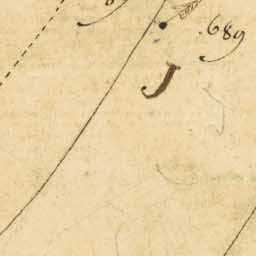 .689
J